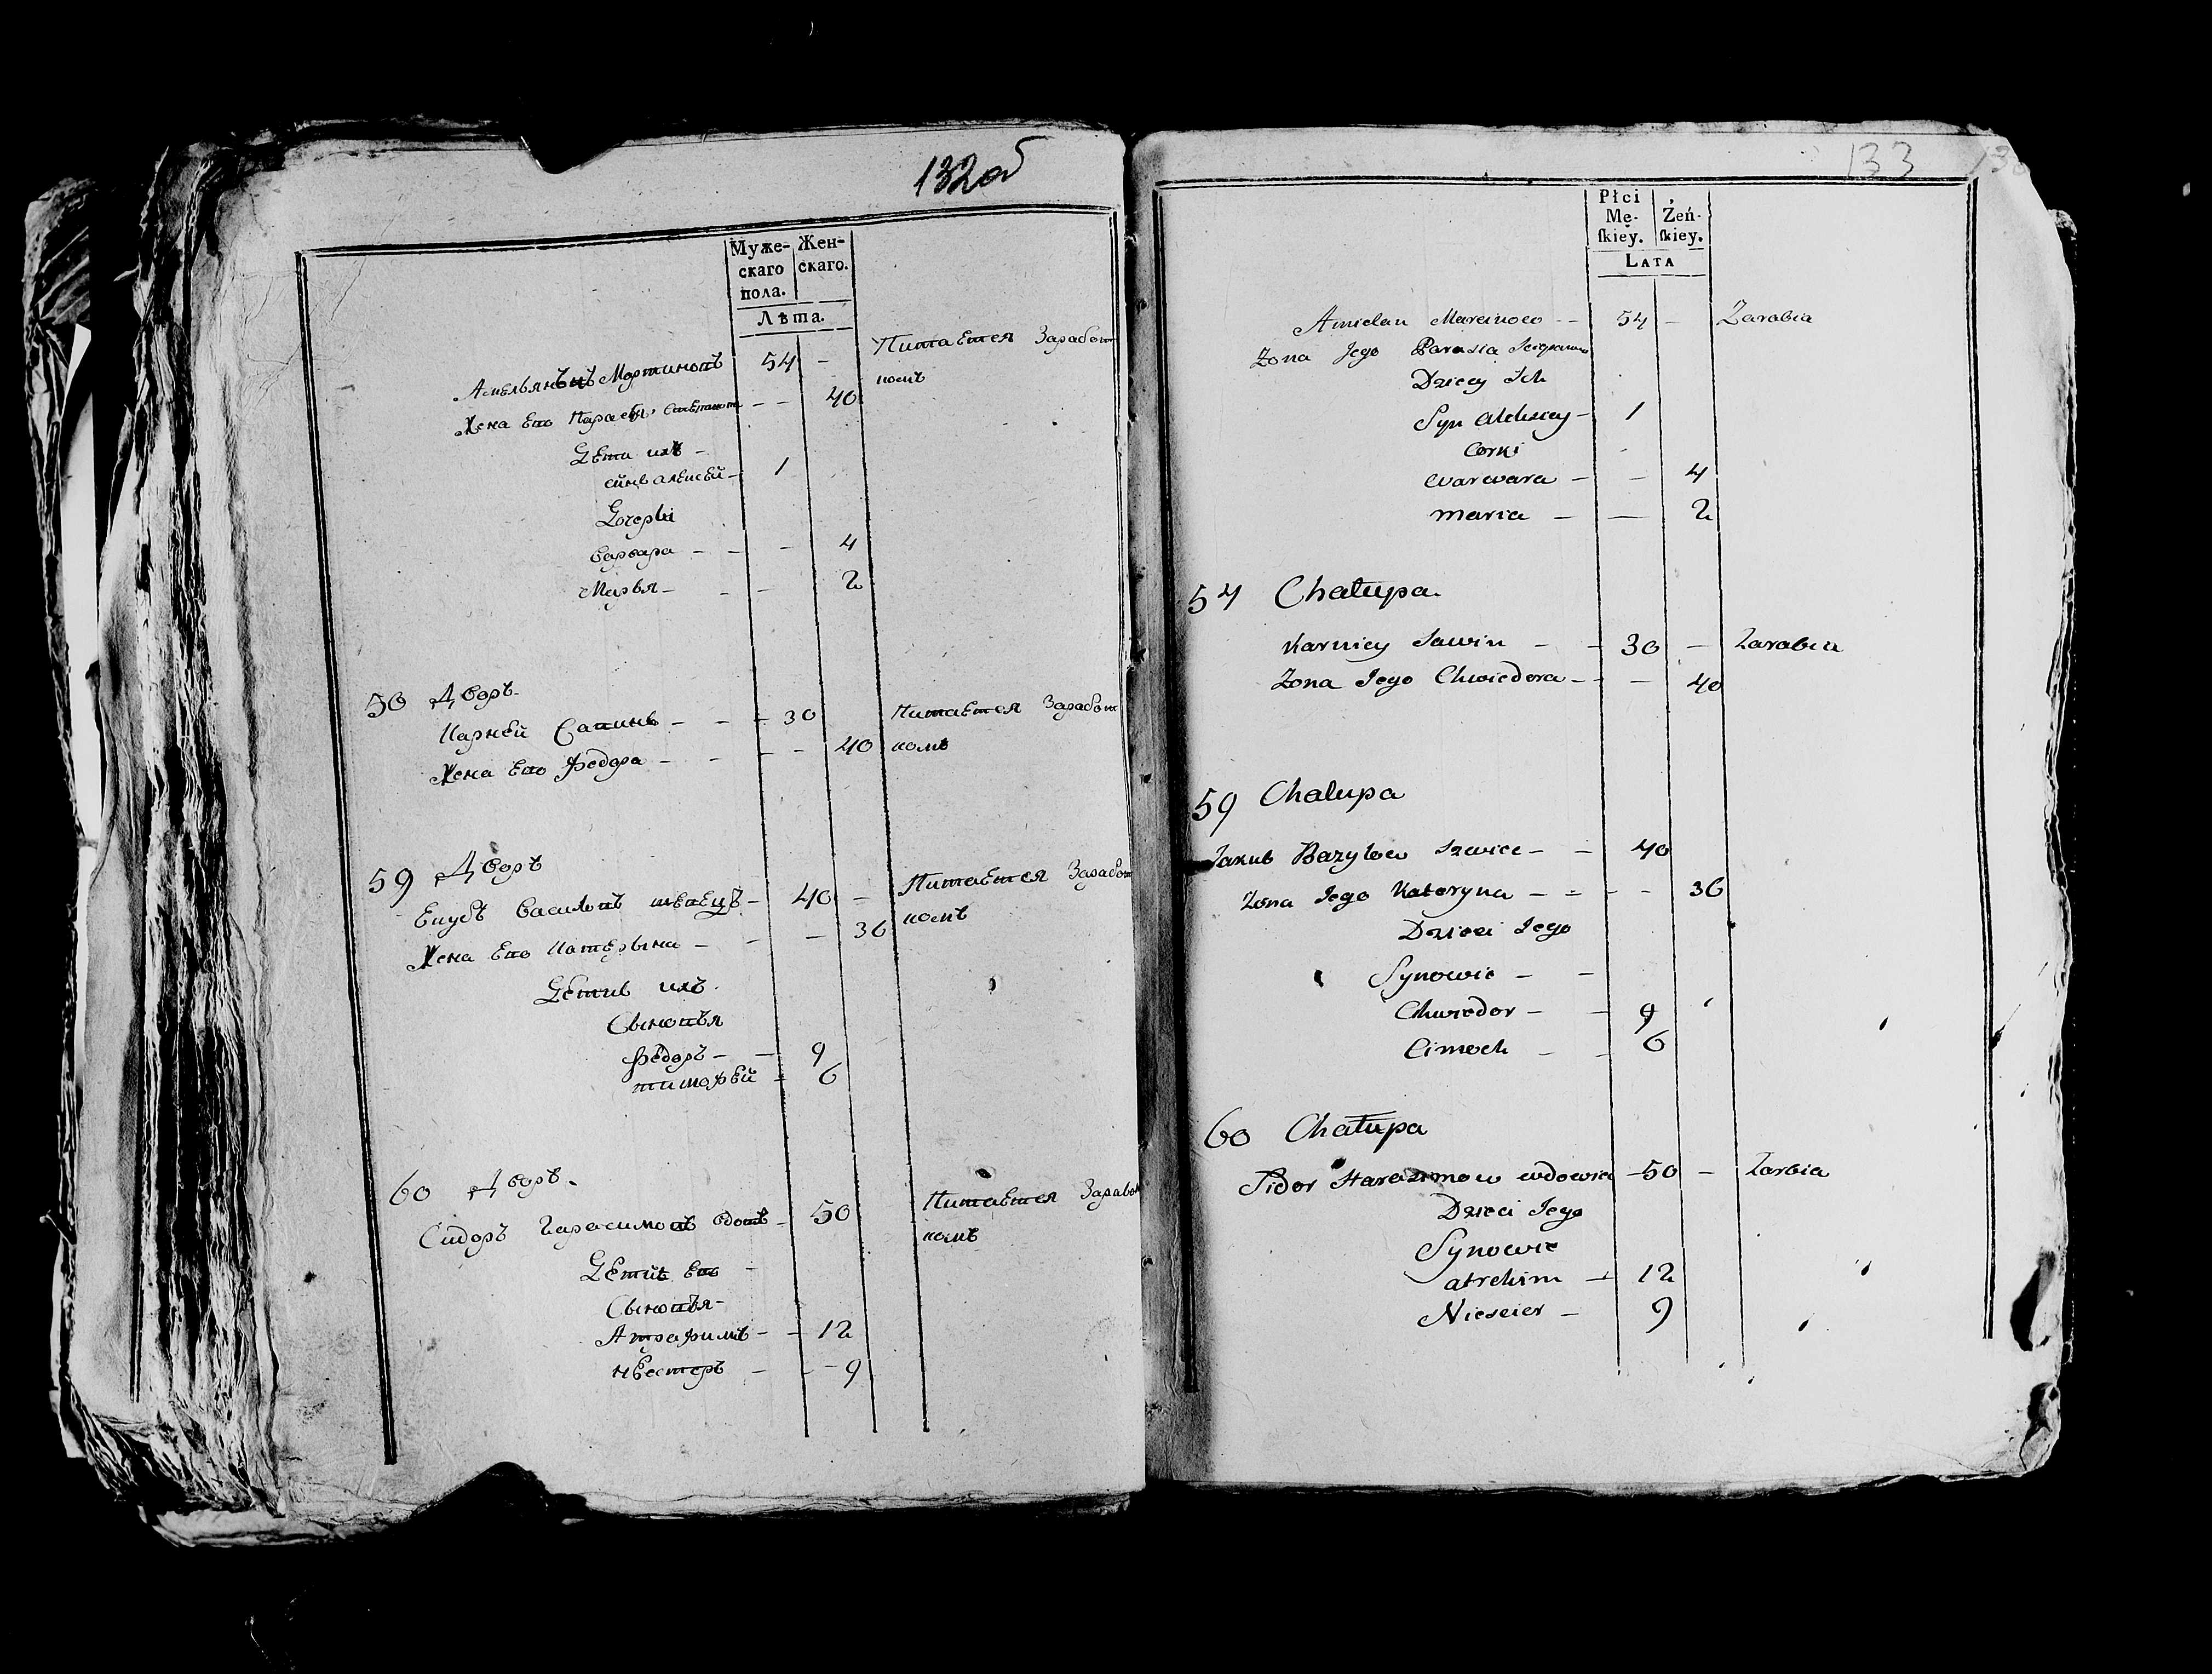 132об
Муже- Жен-
скаго скаго.
пола.
Лѣта.
Амельянъ Мартиновъ 54 - Питается Заработ
комъ
Жена Его Парасья - - 40
Дети ихъ -
сынъ алексей - 1
Дочерьи
варвара - - - 4
Марья - - - 2
58 Дворъ.
Карней Савинъ - - - 30 Питается Заработ
Жена Его Федора - - - - 40 комъ
59 Дворъ
Екубъ Василевъ швецъ - 40 - Питается Заработ
Жена Его Катерына - - - 36 комъ
Дети ихъ.
Сыновья
федоръ - - 9
тимофей - 6
60 Дворъ.
Сидоръ Гарасимовъ вдовъ - 50 Питается Заработ
комъ
Дети Его -
Сыновья -
Атрафимъ - - 12
нестеръ - - - 9
133
Płci
Mę- Żeń-
ſkiey. ſkiey.
LATA
Amielan Marcinow - - 54 - Zarabia
Zona Jego Parasia
Dziecy Ich
Syn alekscy - 1
Corki
Warwara - - 4
maria - — 2
54 Chałupa.
Karniey Sawin - - 30 - Zarabia
Zona Jego Chwiedora - - - 40
59 Chalupa
Jakub Bazylow Szwiec - - 40
Zona Jego Kateryna - = - - 36
Dzieci Jego
Synowie - -
Chwiedor - - 9
Cimoch - - 6
60 Chałupa
Sidor Harazimow wdowiec - 50 - Zarbia
Dzieci Jego
Synowie
atrchim - 12
Niescier - 9